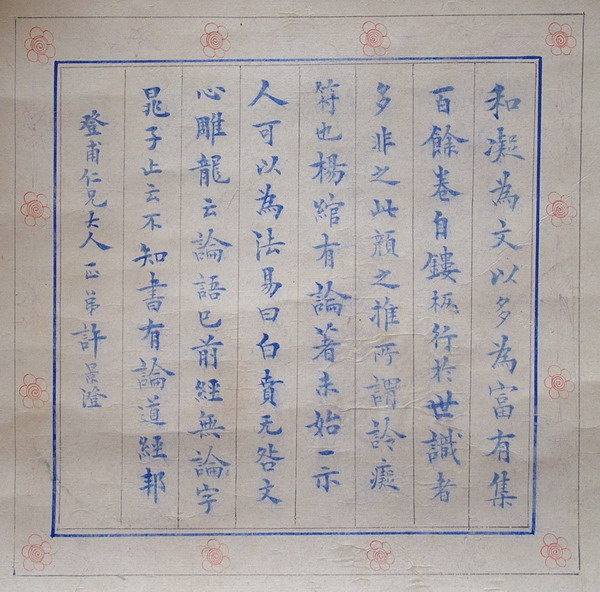 和凝為文以多為富有集
百餘卷自鏤板行於世識者
多非之此顏之推所謂詅癡
符也楊綰有論著未始一示
人可以為法易曰白賁无咎文
心雕龍云論語已前經無論字
晁子止云不知書有論道經邦
登甫仁兄大人正弟許景澄